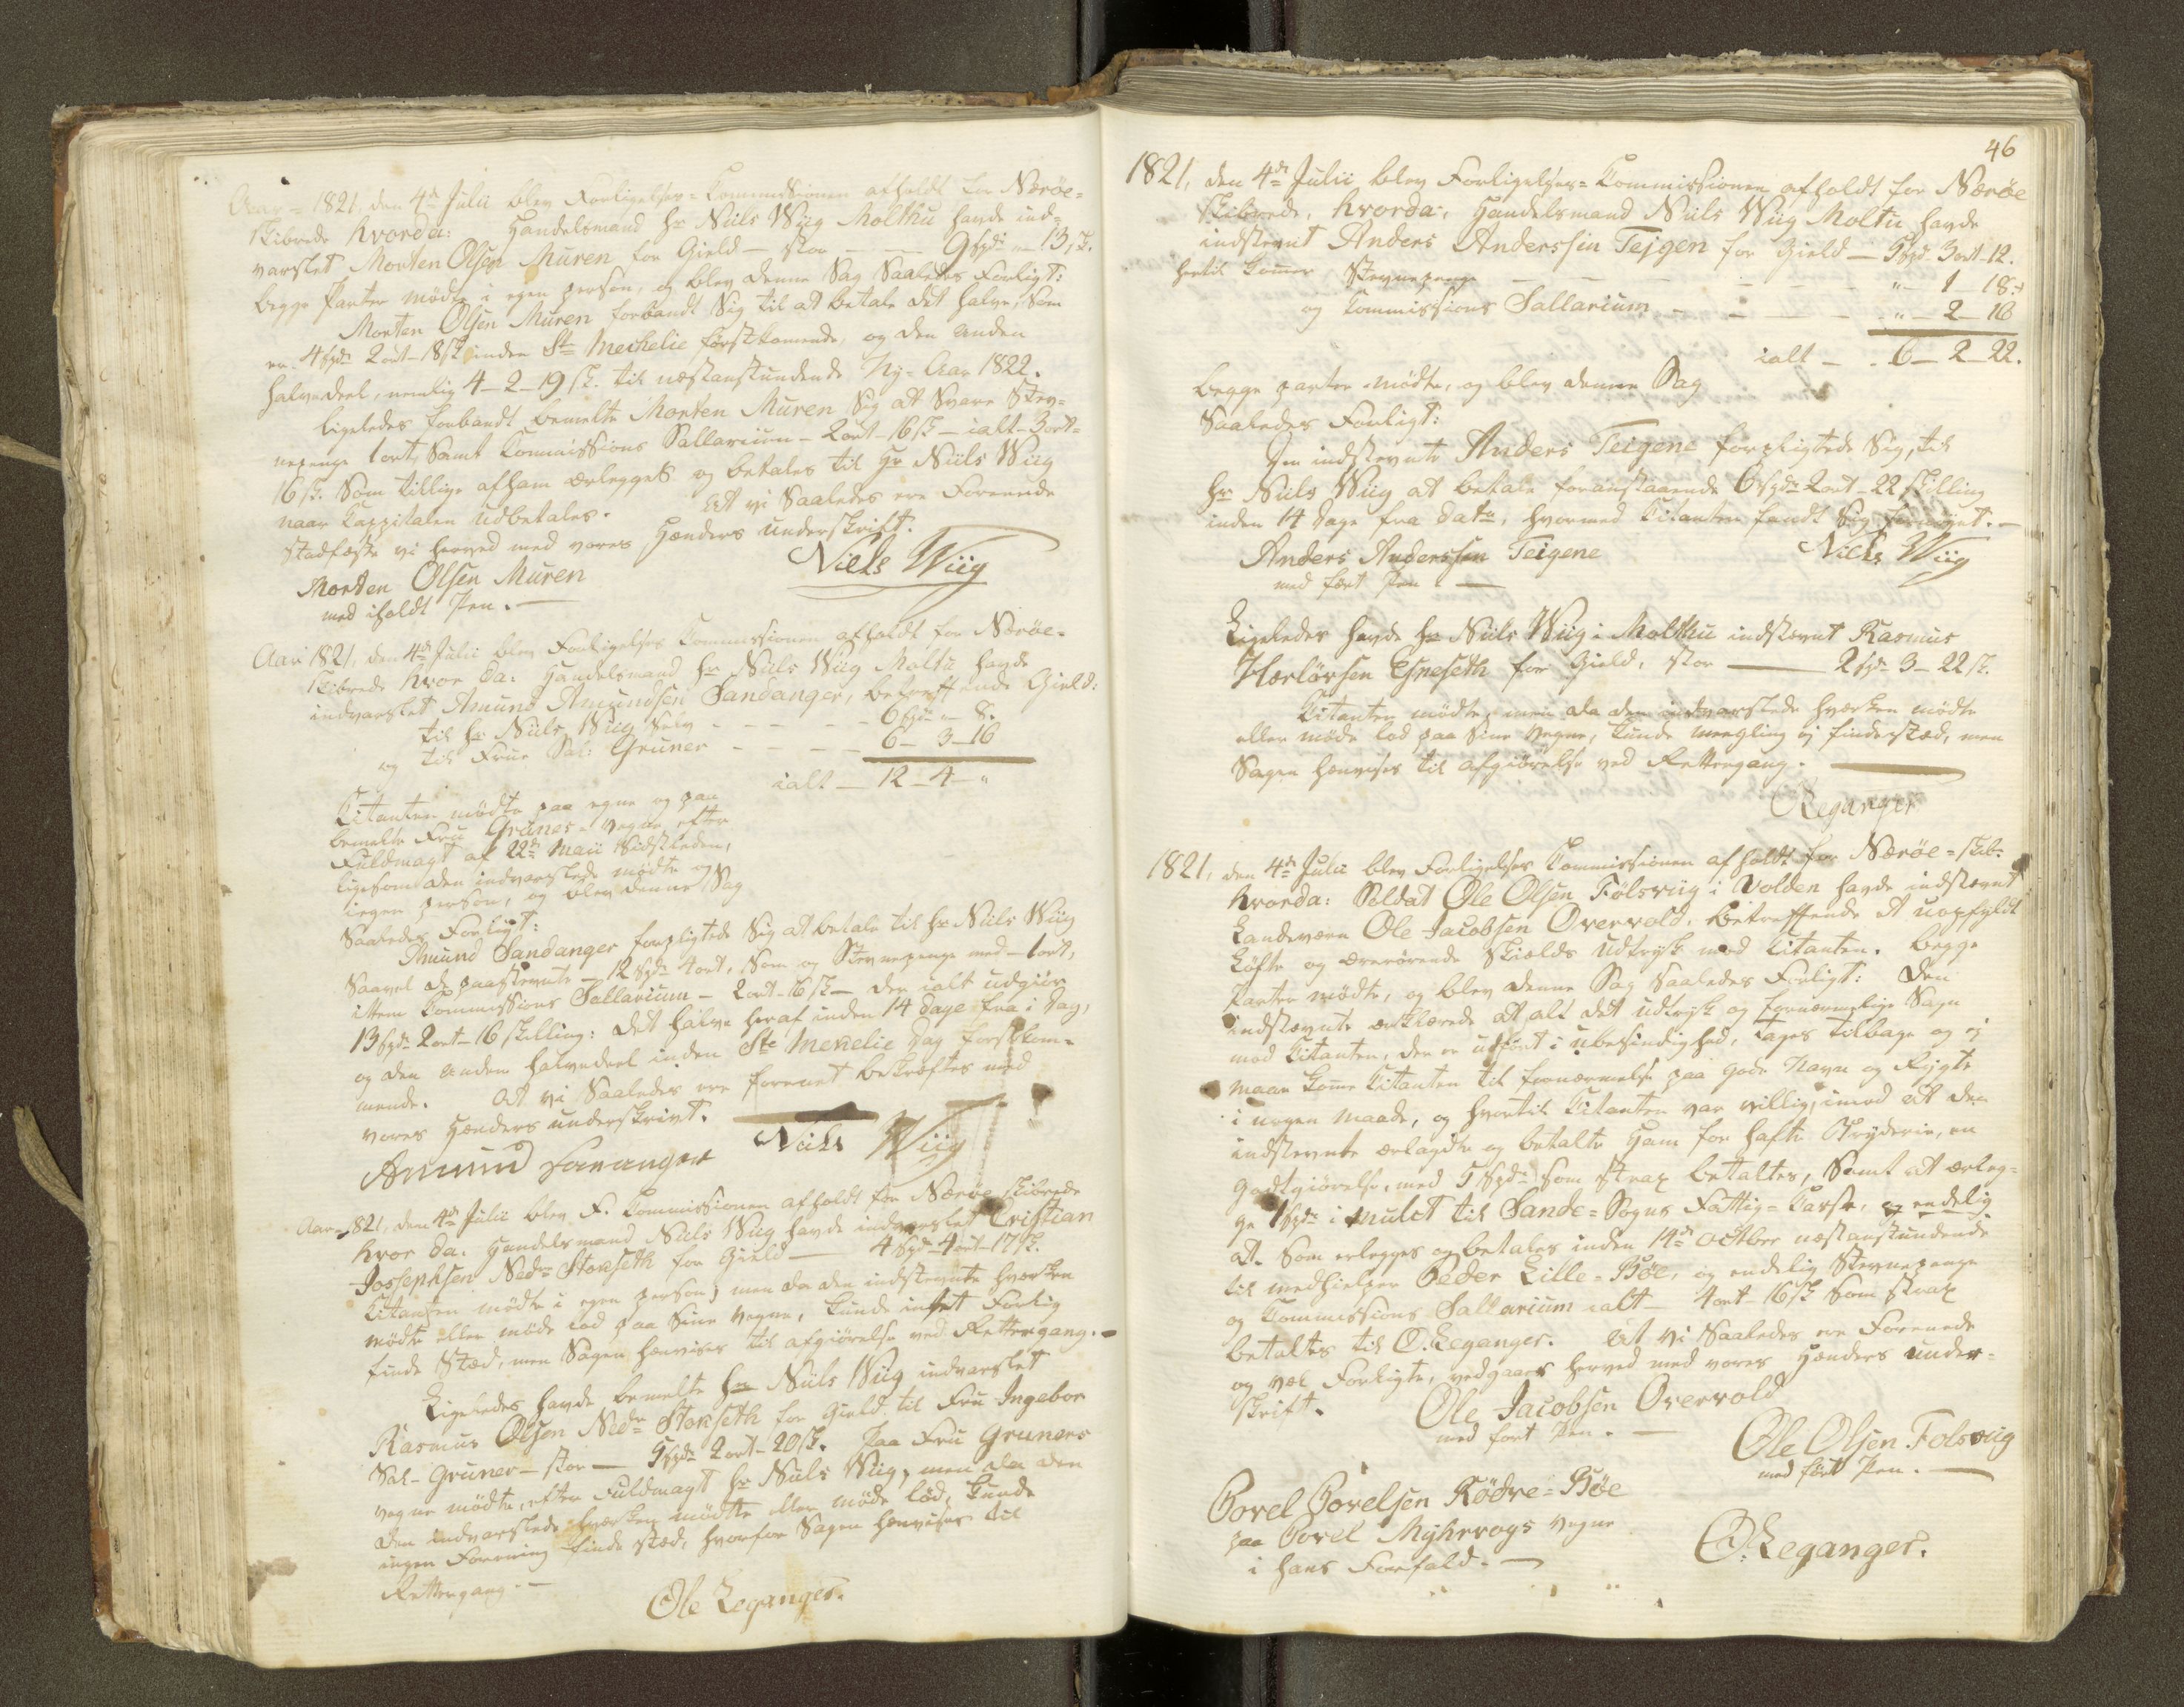 Aar = 1821, den 4de Julii blev Forligelses-Commissionen afholdt for Nærøe-
skibrede hvorda: Handelsmand Hr Niels Wiig Molthu havde ind-
varslet Morten Olsen Muren for Gield – stor – – 9 spd: „ 13 s.
begge Parter mødte i egen person, og blev denne Sag Saaledes Forligt:
Morten Olsen Muren forbandt Sig til at betale det halve, Som
er 4 spd: 2 ort – 18 s inden Ste Mechelie førstkomende, og den anden
halvedeel, nemlig 4 – 2 – 19 s. til næstanstundende Ny-Aar 1822.
ligeledes forbandt bemelte Morten Muren Sig at Svare Stev-
nepenge 1 ort, Samt Commissions Sallarium – 2 ort – 16 s – ialt – 3 ort –
16 s. Som tillige af ham erlegges og betales til Hr Niels Wiig
naar Cappitalen udbetales. At vi Saaledes ere Foreende
stadfæste vi herved med vores Hænders underskrift.
Morten Olsen Muren Niels Wiig
med iholdt Pen. –
Aar 1821, den 4de Julii blev Forligelses Commissionen afholdt for Nærøe-
skibrede hvor da: Handelsmand Hr Niels Wiig Moltu havde
indvarslet Amund Amundsen Sandanger, betreffende Gield:
til Hr Niels Wiig Selv – – – – – 6 spd: „ 8.
og til Frue Sal: Gruner – – – – 6 – 3 – 16
ialt – 12 – 4 – „
Citanten mødte paa egne og paa
bemelte Fru Gruners – vegne efter
Fuldmagt af 22de Maii Sidstleden,
ligesom den indvarslede mødte
i egen person, og blev denne Sag
Saaledes Forligt:
Amund Sandanger forpligtede Sig at betale til Hr Niels Wiig
Saavel de paastevnte – 12 spd: 4 ort, Som og Stevnepenge med – 1 ort,
ittem Commissions Sallarium – 2 ort – 16 s – der ialt udgiør
13 spd: 2 ort – 16 skilling: det halve heraf inden 14 dage fra i Dag,
og den anden halvedeel inden Ste Mekelie Dag førstkom-
mende. At vi Saaledes ere forenet bekræftes med
vores Hænders underskrivt.
Amund Sananger Niels Wiig
Aar 1821, den 4de Julii blev F. Commissionen afholdt for Nærøe skibrede
hvor da: Handelsmand Niels Wiig havde indvarslet Cristian
Jossephsen Nedre Stokseth for Gield – 4 spd: 4 ort – 17 s.
Citanten mødte i egen person, men da den indstevnte hverken
mødte eller møde lod paa Sine vegne, kunde intet Forlig
finde Sted, men Sagen henvises til afgiørelse ved Rettergang. –
Ligeledes havde bemelte Hr Niels Wiig indvarslet
Rasmus Olsen Nedre Stokseth for Gield til Fru Ingebor
Sal – Gruner – stor – 5 spd: 2 ort – 20 s. Paa Fru Gruners
vegne mødte, efter Fuldmagt Hr Niels Wiig, men da den
den indvarslede hverken mødte eller møde lod, kunde
ingen Forening finde sted, hvorfor Sagen henvises til
Rettergang. –
Ole Leganger.
46
1821, den 4de Julii blev Forligelses-Commissionen afholdt for Nærøe
skibrede, hvorda: Handelsmand Niels Wiig Moltu havde
indstevnt Anders Anderssin Tejgen for Gield – 5 spd: 3 ort – 12.
hertil komer Stevnepenge – – – – „ – 1 – 18.
og Commissions Sallarium – – – – „ – 2 – 16
ialt – 6 – 2 – 22.
begge parter mødte, og blev denne Sag
Saaledes Forligt:
Den indstevnte Anders Teigene forpligtede Sig, til
Hr Niels Wiig at betale foranstaaende 6 spd: 2 ort – 22 skilling
inden 14 Dage fra dato, hvormed Citanten fandt Sig fornøyet. –
Anders Anderssen Teigene Niels Wiig
med ført Pen. –
Ligeledes havde Hr Niels Wiig i Molthu indstevnt Rasmus
for Gield, stor – 2 spd: 3 – 22 s.
Citanten mødte, men da den indvarslede hverken mødte
eller møde lod paa Sine vegne, kunde meegling ej finde sted, men
Sagen henvises til afgiørelse ved Rettergang. –
Leganger
1821, den 4de Julii blev Forligelses Commissionen afholdt for Nærøe-skib:
hvorda: Soldat Ole Olsen Følsviig i Volden havde indstevnt
Landeværn Ole Jacobsen Overvold, betreffende et uopfyldt
Løfte og ærerørende Skields udtryk mod Citanten. begge
Parter mødte, og blev denne Sag Saaledes Forligt: Den
indstevnte erklærede at alt det udtryk og fornærmelige Sagn
mod Citanten, der er udført i ubesindighed, tages tilbage og ej
maae kome Citanten til fornærmelse paa gode Navn og Rygte
i nogen maade, og hvortil Citanten var villig, imod at den
indstevnte erlagde og betalte Ham for hafte Bryderie, en
godtgiørelse, med 5 spd: som strax betaltes, Samt at erleg-
ge 1 spd: i mulct til Sande-Sogns Fattig-Casse, og endelig
at Som erlegges og betales inden 14de octber næstanstundende
til medhielper Peder Lille-Bøe, og endelig Stevnepenge
og Commissions Sallarium ialt – 4 ort – 16 s Som strax
betaltes til O. Leganger. At vi Saaledes ere Forenede
og vel Forligte, vedgaaes herved med vores Hænders under-
skrift. Ole Jacobsen Overvold
med ført Pen. – Ole Olsen Folsviig
med ført Pen. –
Povel Povelsen Rødre-Bøe
paa Povel Myhrvogs vegne
i hans Forfald. – O. Leganger.